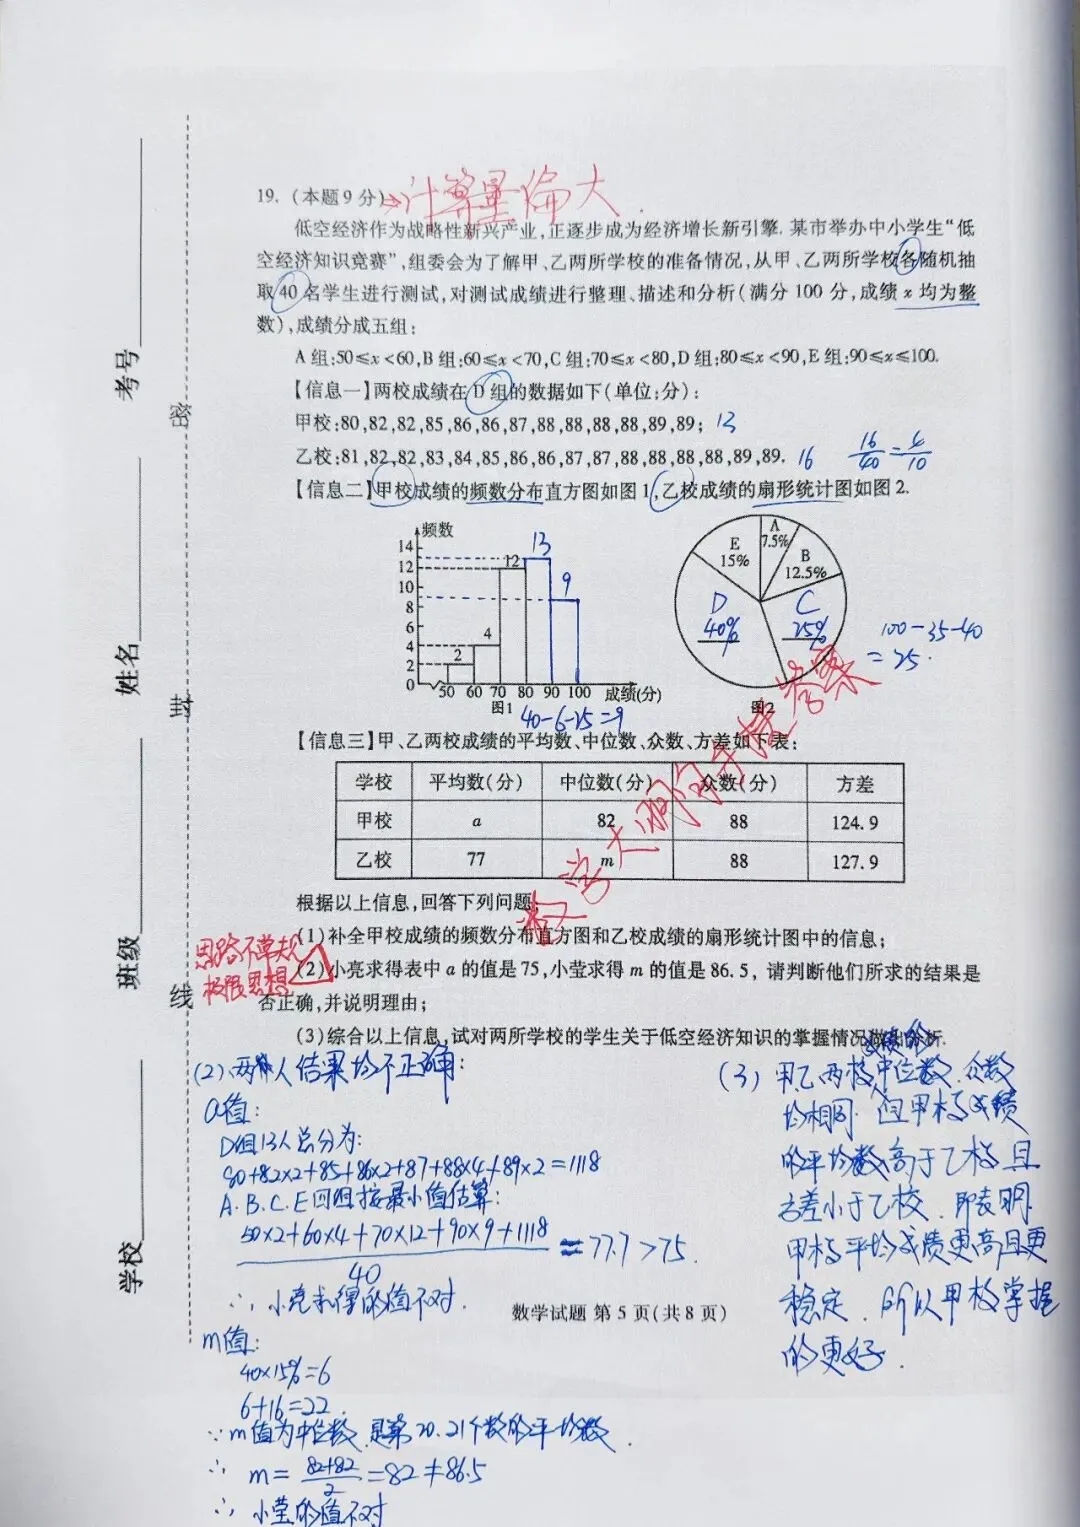 19. (本题9分)→计算量偏大
低空经济作为战略性新兴产业,正逐步成为经济增长新引擎. 某市举办中小学生“低
空经济知识竞赛”,组委会为了解甲、乙两所学校的准备情况,从甲、乙两所学校各随机抽
取40名学生进行测试,对测试成绩进行整理、描述和分析(满分100分,成绩x均为整
数),成绩分成五组:
A组:50≤x<60,B组:60≤x<70,C组:70≤x<80,D组:80≤x<90,E组:90≤x≤100.
【信息一】两校成绩在D组的数据如下(单位:分):
甲校:80,82,82,85,86,86,87,88,88,88,88,89,89; 13
乙校:81,82,82,83,84,85,86,86,87,87,88,88,88,88,89,89. 16 16/40=4/10
【信息二】甲校成绩的频数分布直方图如图1,乙校成绩的扇形统计图如图2.
频数
14
12
10
8
6
4
2
0
2
4
12
13
9
50 60 70 80 90 100 成绩(分)
图1
40-6-25=9
A
7.5%
B
12.5%
E
15%
D
40%
C
25%
图2
100-35-40
=25.
【信息三】甲、乙两校成绩的平均数、中位数、众数、方差如下表:
学校 平均数(分) 中位数(分) 众数(分) 方差
甲校 a 82 88 124.9
乙校 77 m 88 127.9
根据以上信息,回答下列问题:
(1)补全甲校成绩的频数分布直方图和乙校成绩的扇形统计图中的信息;
(2)小亮求得表中a的值是75,小莹求得m的值是86.5, 请判断他们所求的结果是
否正确,并说明理由;
(3)综合以上信息,试对两所学校的学生关于低空经济知识的掌握情况做出分析.
思路不常规
极限思想
(2)、两人结果均不正确:
a值:
D组13人总分为:
80+82×2+85+86×2+87+88×4+89×2=1118
A.B.C.E四组按最小值估算:
50×2+60×4+70×12+90×9+1118
40
≈77.7>75.
∴小亮求得的值不对.
m值:
40×15%=6
6+16=22.
∵m值为中位数,是第20.21个数的平均数.
∴ m=82+82/2=82≠86.5
∴小莹的值不对
(3) 甲、乙两校成绩的中位数、众数
均相同,但甲校成绩
的平均数高于乙校且
方差小于乙校,即表明
甲校平均成绩更高且更
稳定.所以甲校掌握
的更好.
数学试题 第5页(共8页)
学校
班级
姓名
考号
密
封
线